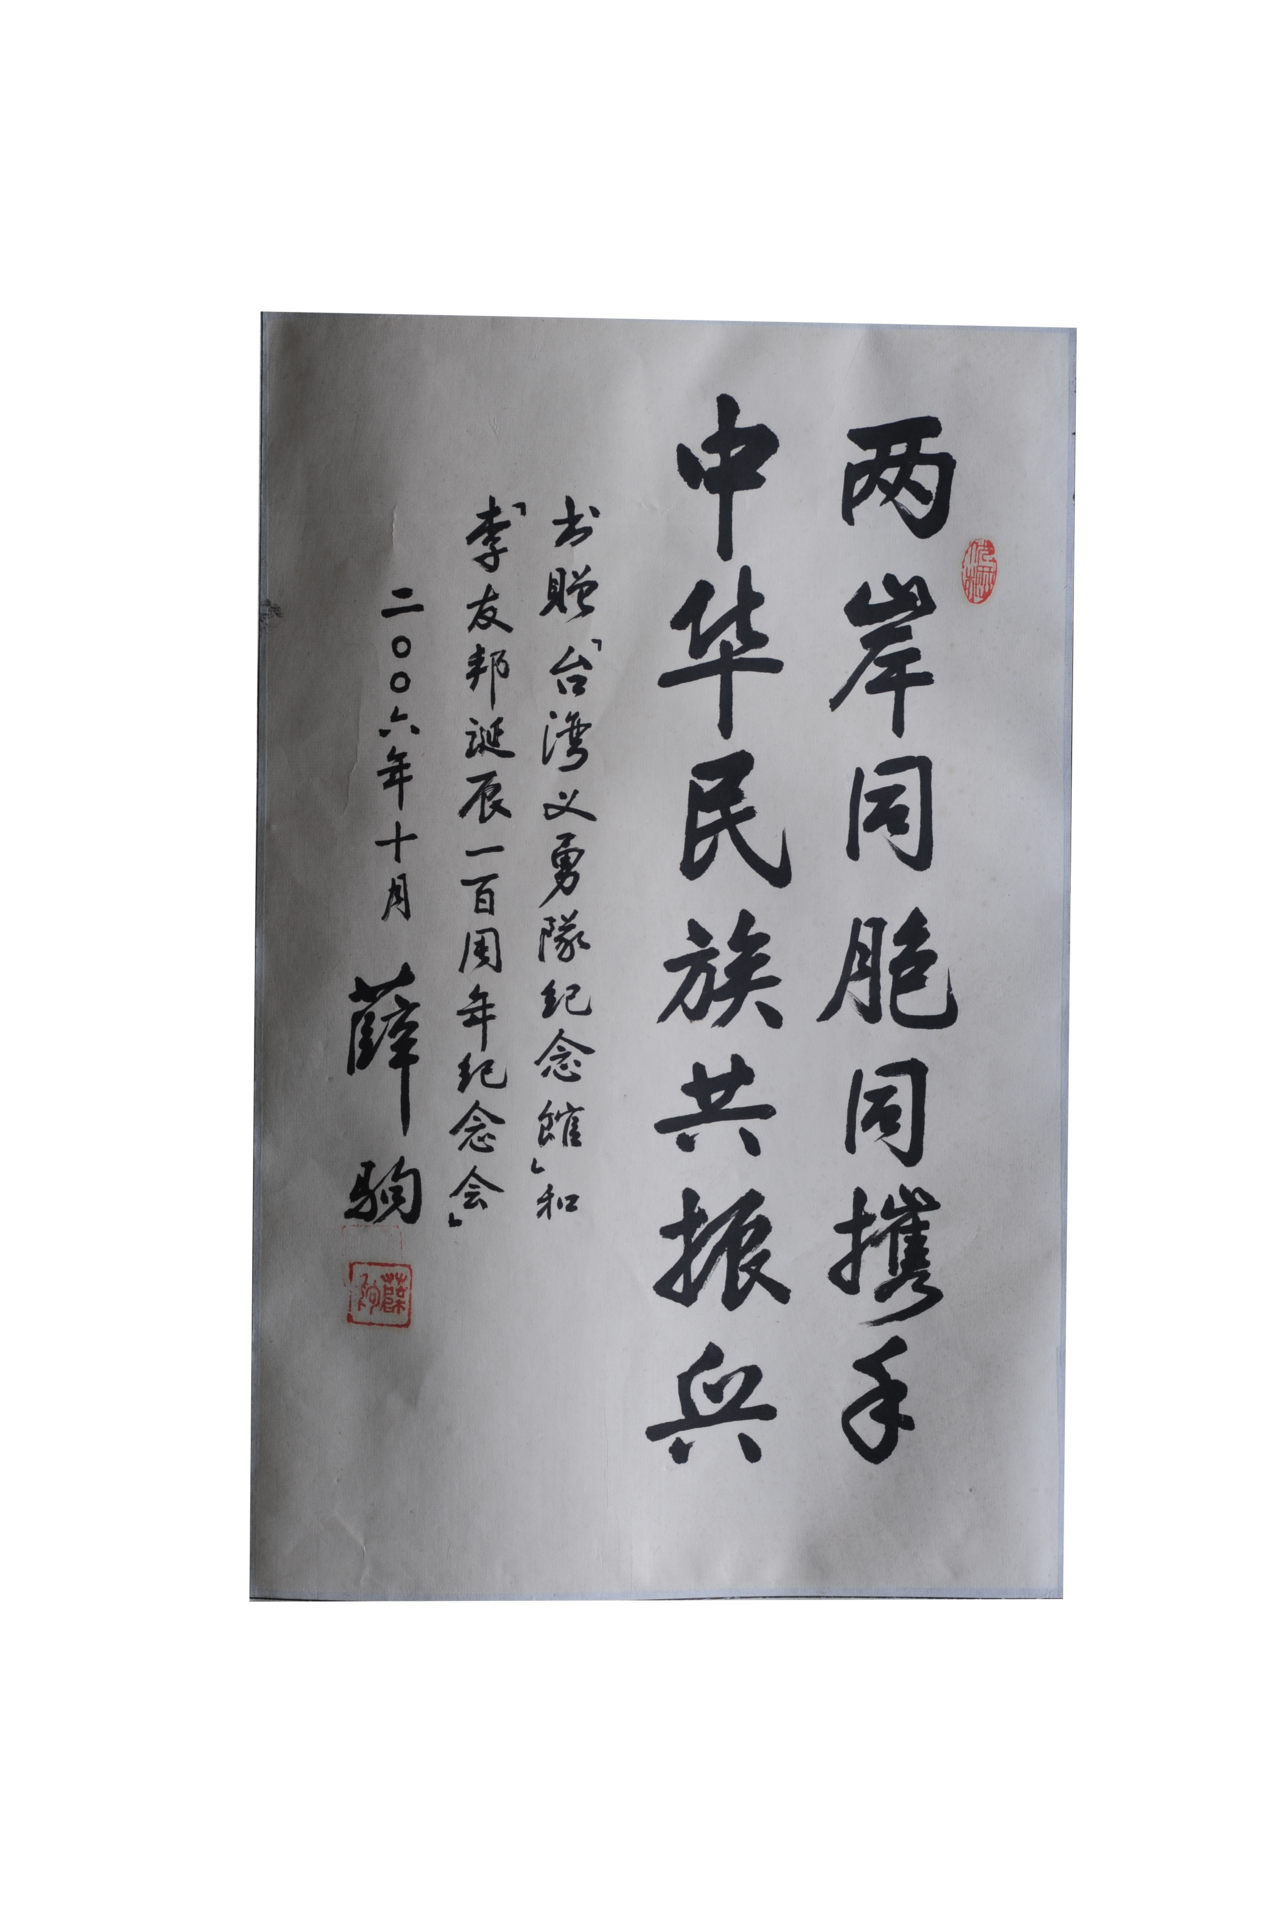 两岸同胞同攜手
中华民族共振兴
书赠「台湾义勇隊纪念館」和
「李友邦诞辰一百周年纪念会」
二〇〇六年十月 薛驹
薛驹